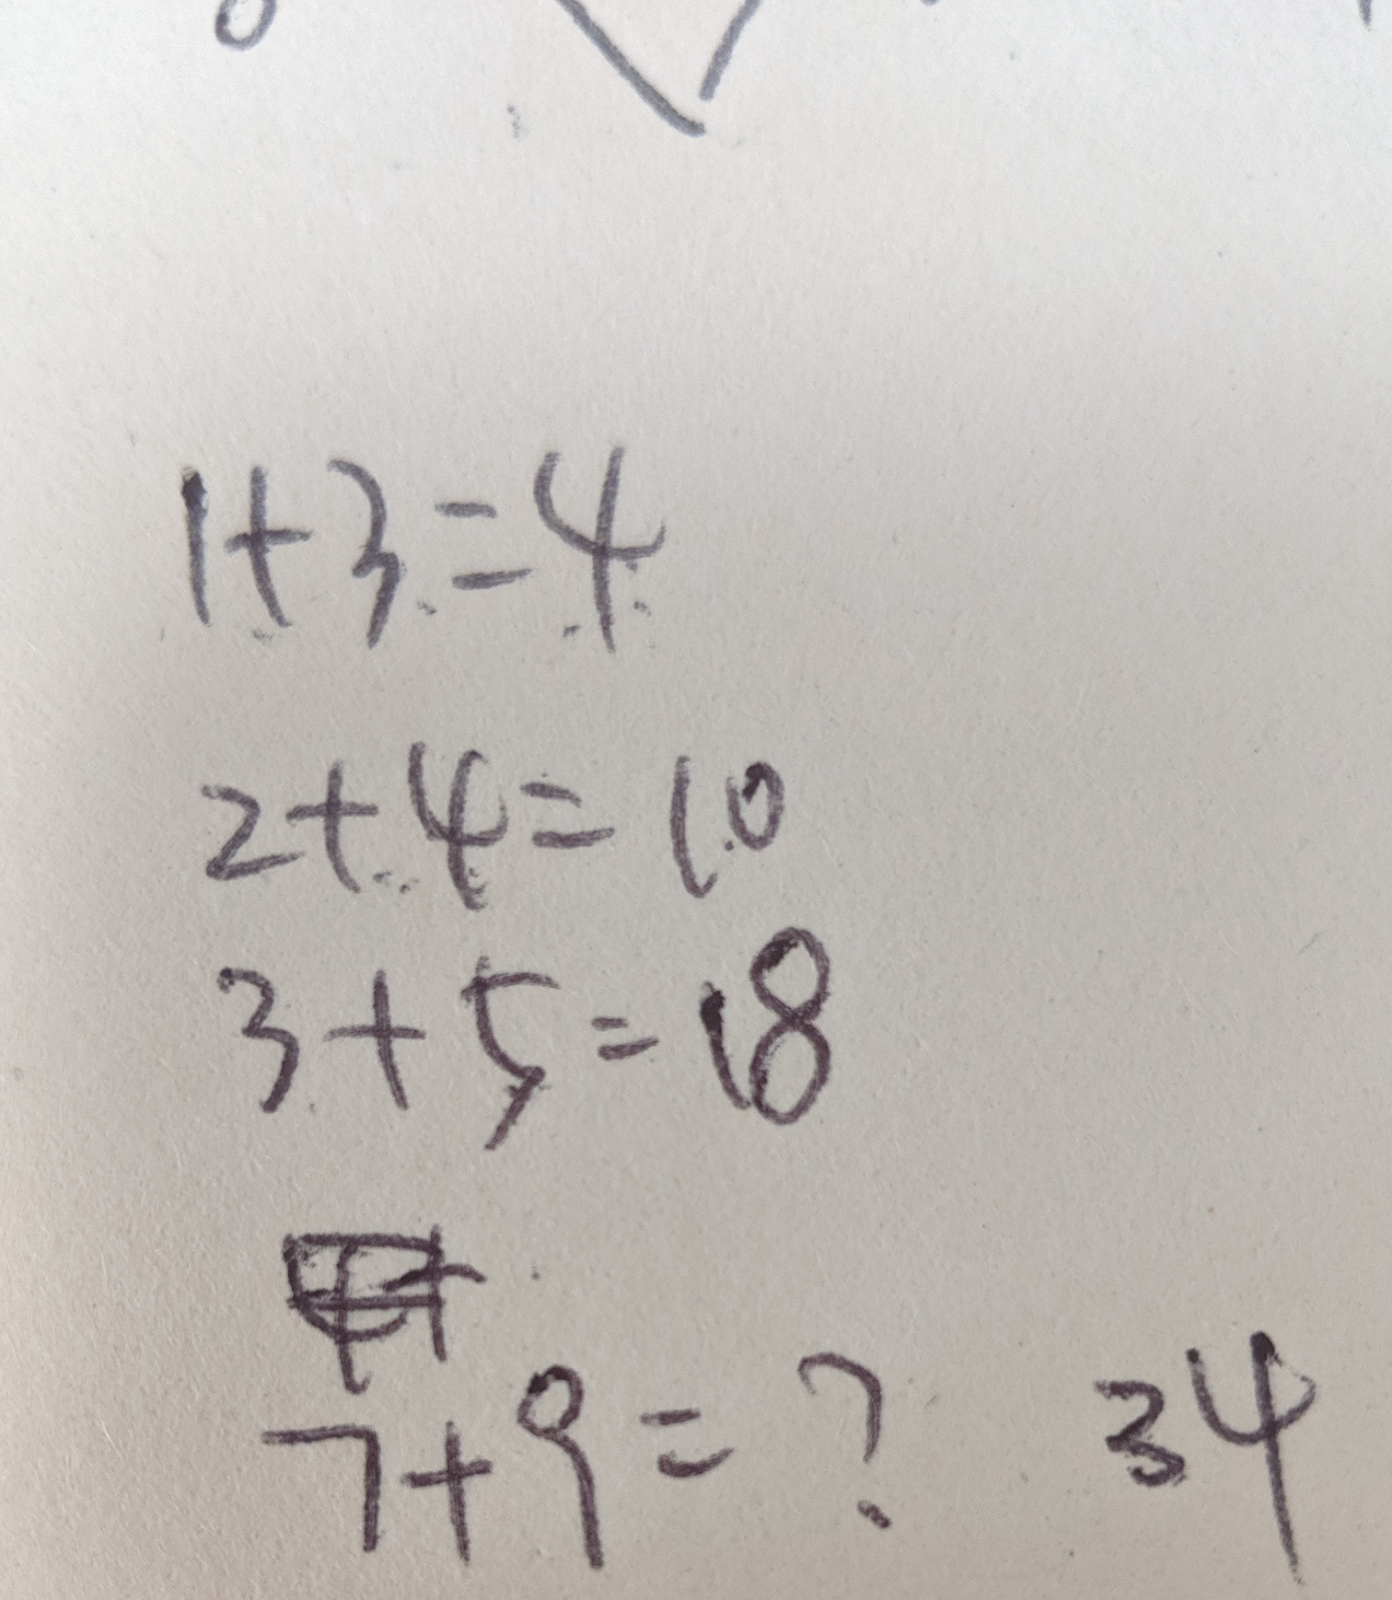 1+3=4
2+4=10
3+5=18
7+9=? 34